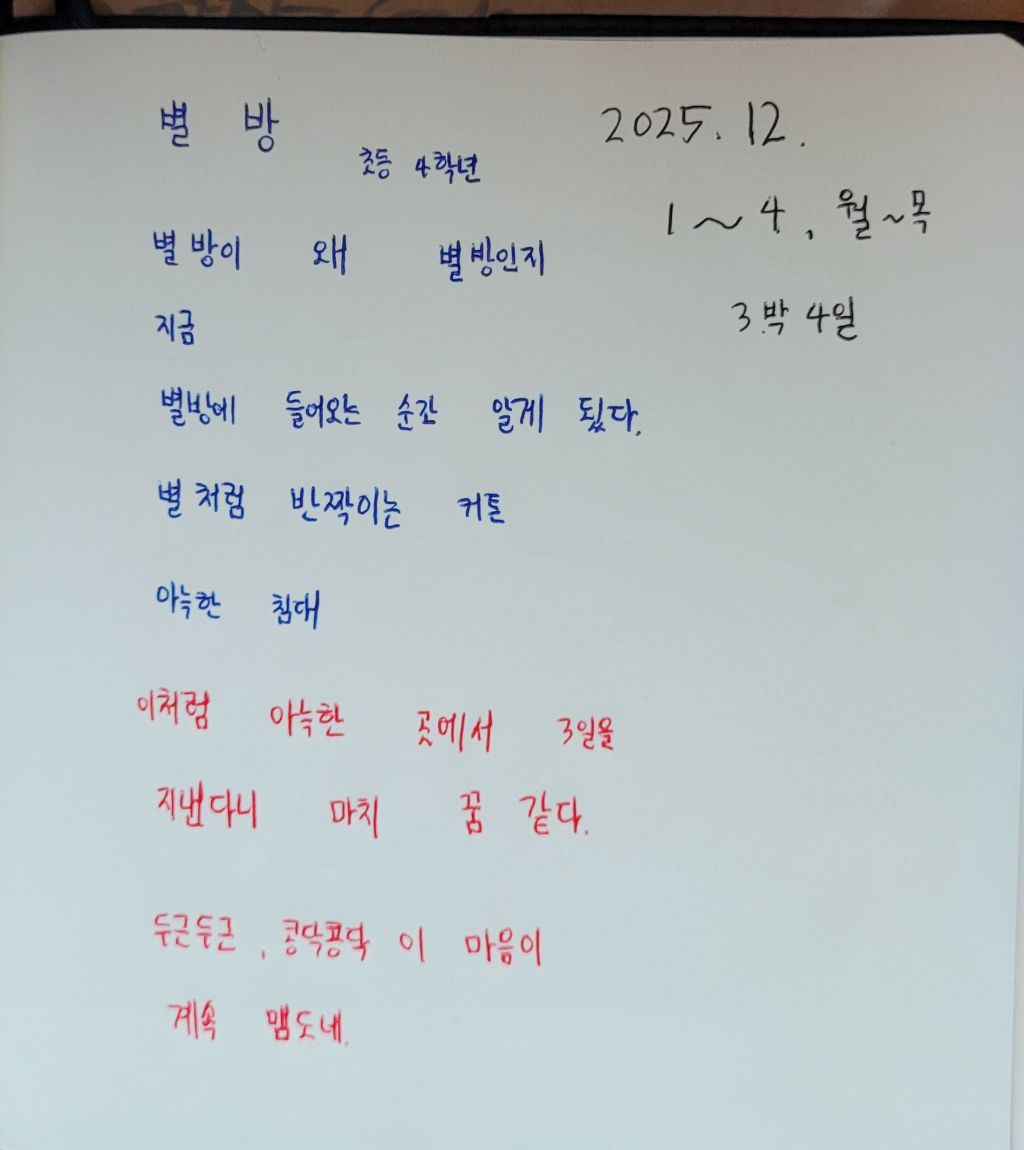 별 방
2025. 12.
초등 4학년
1~4, 월~목
별방이 왜 별방인지
3박 4일
지금
별방에 들어오는 순간 알게 됬다.
별처럼 반짝이는 커튼
아늑한 침대
이처럼 아늑한 곳에서 3일을
지낸다니 마치 꿈 같다.
두근두근, 콩닥콩닥 이 마음이
계속 맴도네.